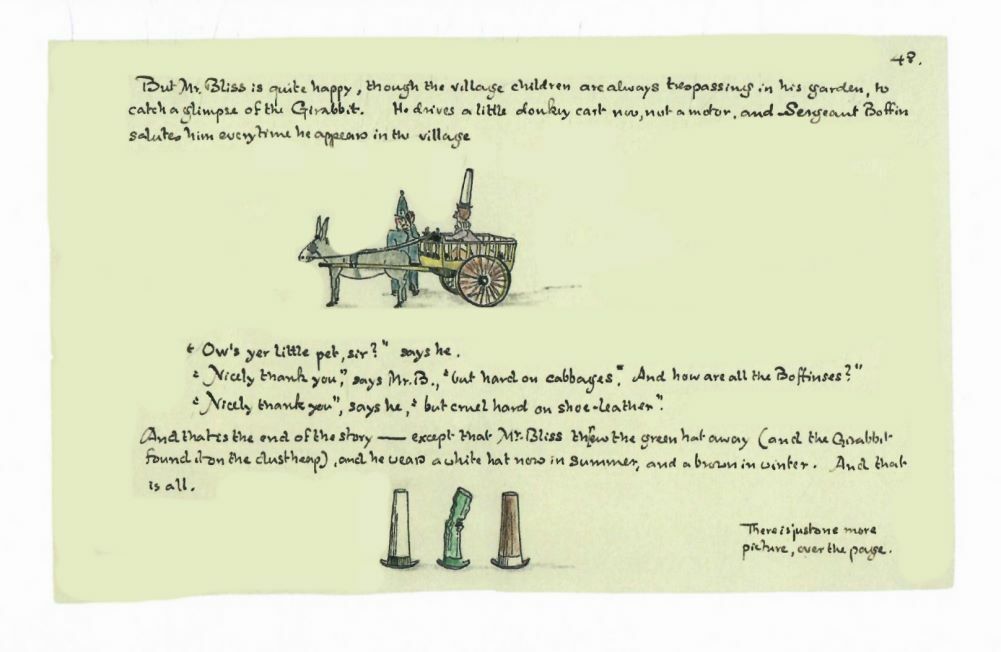 48.
But Mr. Bliss is quite happy, though the village children are always trespassing in his garden, to
catch a glimpse of the Girabbit. He drives a little donkey cart now, not a motor, and Sergeant Boffin
salutes him everytime he appears in the village
"Ow's yer little pet, sir?" says he.
"Nicely thank you", says Mr. B., "but hard on cabbages". And how are all the Boffinses?"
"Nicely thank you", says he, "but cruel hard on shoe-leather".
And that is the end of the story — except that Mr. Bliss threw the green hat away (and the Girabbit
found it on the dustheap), and he wears a white hat now in summer, and a brown in winter. And that
is all.
There is just one more
picture, over the page.